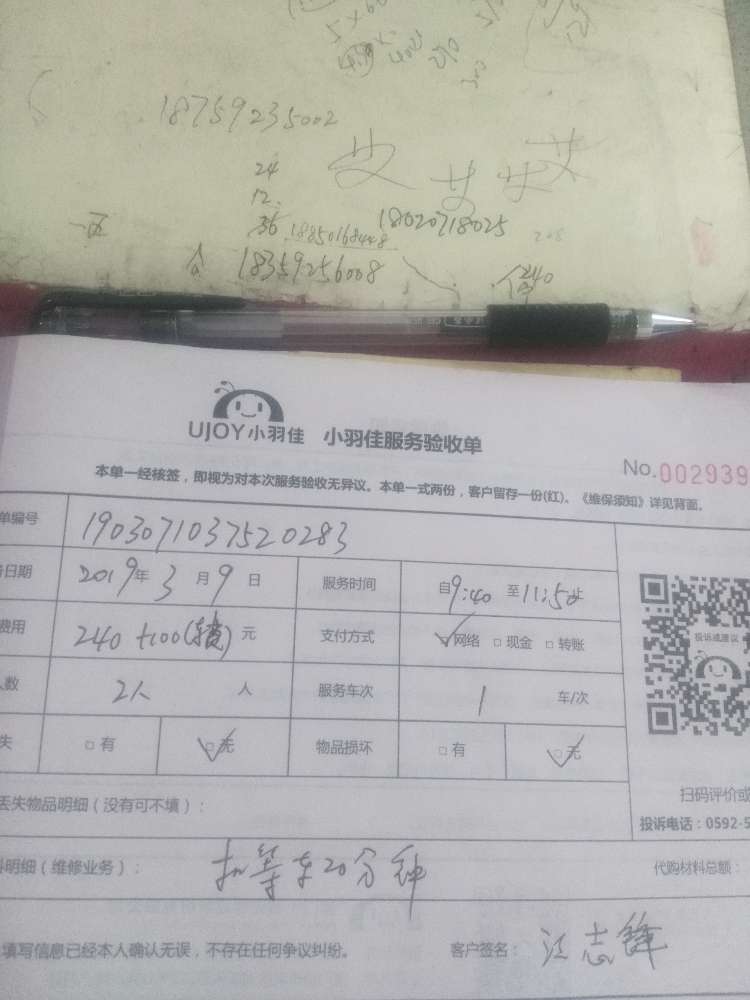 5×60
210
300
18759235002
24
12
36
18850168448
18020718025
208
18359256008
240
UJOY小羽佳 小羽佳服务验收单
No.002939
本单一经核签，即视为对本次服务验收无异议。本单一式两份，客户留存一份(红)、《维保须知》详见背面。
单编号 1903071037520283
日期 2019年3月9日 服务时间 自9:40至11:50止
费用 240+100(接)元 支付方式 ☑网络 □现金 □转账
人数 2人 人 服务车次 1 车/次
失 □有 ☑无 物品损坏 □有 ☑无
投诉或建议
扫码评价或
丢失物品明细（没有可不填）：
投诉电话：0592-5
料明细（维修业务）： 扣等车20分钟 代购材料总额：
填写信息已经本人确认无误，不存在任何争议纠纷。 客户签名： 江志锋